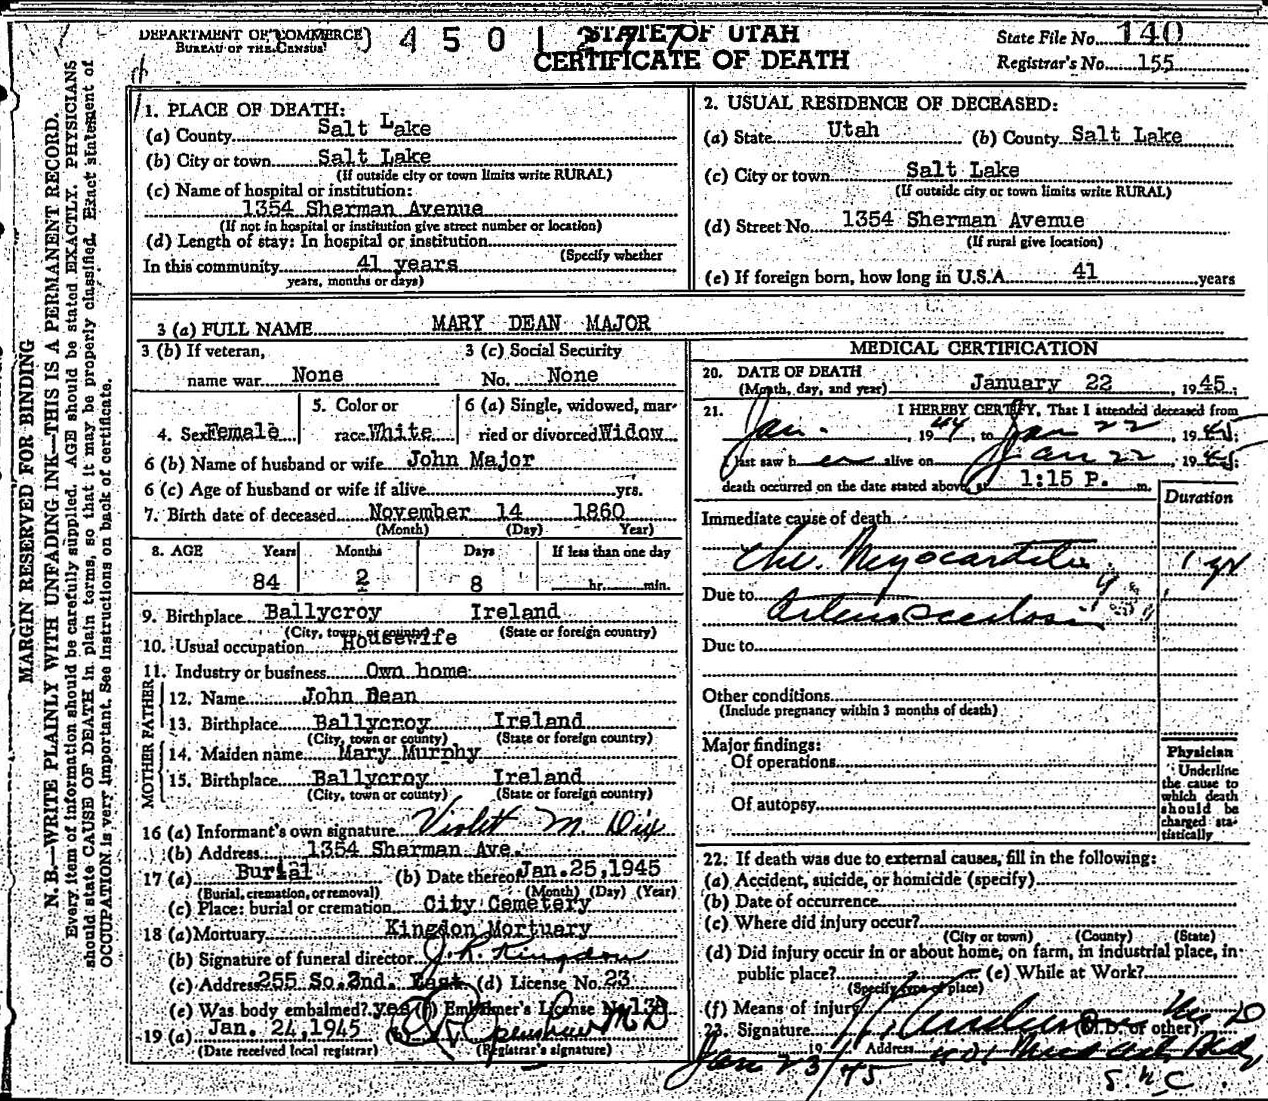 DEPARTMENT OF COMMERCE
BUREAU OF THE CENSUS
4 5 0 1
STATE OF UTAH
CERTIFICATE OF DEATH
State File No. 140
Registrar's No. 155
MARGIN RESERVED FOR BINDING
N. B.—WRITE PLAINLY WITH UNFADING INK—THIS IS A PERMANENT RECORD.
Every item of information should be carefully supplied. AGE should be stated EXACTLY. PHYSICIANS
should state CAUSE OF DEATH in plain terms, so that it may be properly classified. Exact statement of
OCCUPATION is very important. See instructions on back of certificate.
1. PLACE OF DEATH:
(a) County Salt Lake
(b) City or town Salt Lake
(If outside city or town limits write RURAL)
(c) Name of hospital or institution:
1354 Sherman Avenue
(If not in hospital or institution give street number or location)
(d) Length of stay: In hospital or institution
(Specify whether
In this community 41 years
years, months or days)
2. USUAL RESIDENCE OF DECEASED:
(a) State Utah (b) County Salt Lake
(c) City or town Salt Lake
(If outside city or town limits write RURAL)
(d) Street No. 1354 Sherman Avenue
(If rural give location)
(e) If foreign born, how long in U.S.A. 41 years
3 (a) FULL NAME MARY DEAN MAJOR
3 (b) If veteran, 3 (c) Social Security
name war None No. None
4. Sex Female 5. Color or race White 6 (a) Single, widowed, married or divorced Widow
6 (b) Name of husband or wife John Major
6 (c) Age of husband or wife if alive yrs.
7. Birth date of deceased November 14 1860
(Month) (Day) (Year)
8. AGE Years Months Days If less than one day
84 2 8 hr. min.
9. Birthplace Ballycroy Ireland
(City, town or county) (State or foreign country)
10. Usual occupation Housewife
11. Industry or business Own home
FATHER
12. Name John Dean
13. Birthplace Ballycroy Ireland
(City, town or county) (State or foreign country)
MOTHER
14. Maiden name Mary Murphy
15. Birthplace Ballycroy Ireland
(City, town or county) (State or foreign country)
16 (a) Informant's own signature Violet M. Dix
(b) Address 1354 Sherman Ave.
17 (a) Burial (b) Date thereof Jan. 25, 1945
(Burial, cremation, or removal) (Month) (Day) (Year)
(c) Place: burial or cremation City Cemetery
18 (a) Mortuary Kingdon Mortuary
(b) Signature of funeral director J. R. Kingdon
(c) Address 255 So. 2nd. East (d) License No. 23
(e) Was body embalmed? yes (f) Embalmer's License No. 
19 (a) Jan. 24, 1945 M D
(Date received local registrar) (Registrar's signature)
MEDICAL CERTIFICATION
20. DATE OF DEATH
(Month, day, and year) January 22 , 1945;
21. I HEREBY CERTIFY, That I attended deceased from
Jan. , 1944, to Jan 22 , 1945;
I last saw her alive on Jan 22 , 1945;
death occurred on the date stated above at 1:15 P. m.
Duration
Immediate cause of death
Chr. Myocarditis 1 yr
Due to Arteriosclerosis
Due to
Other conditions
(Include pregnancy within 3 months of death)
Major findings:
Of operations
Of autopsy
Physician
Underline
the cause to
which death
should be
charged sta-
tistically
22. If death was due to external causes, fill in the following:
(a) Accident, suicide, or homicide (specify)
(b) Date of occurrence
(c) Where did injury occur?
(City or town) (County) (State)
(d) Did injury occur in or about home, on farm, in industrial place, in
public place? (e) While at Work?
(Specify type of place)
(f) Means of injury
23. Signature M D (M.D. or other)
Jan 23/45 19 Address
S. L. C.